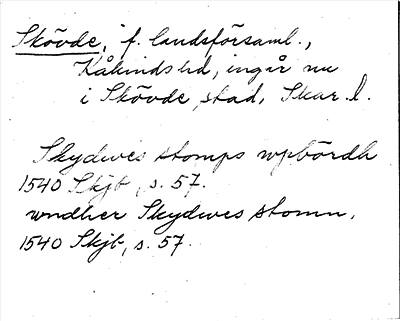 Skövde, f. landsförsaml.,
Kåkinds hd, ingår nu
i Skövde stad, Skar. l.
Skydwes stomps wpbördh
1540 Skjb, s. 57.
wndher Skydwes stomn.
1540 Skjb, s. 57.